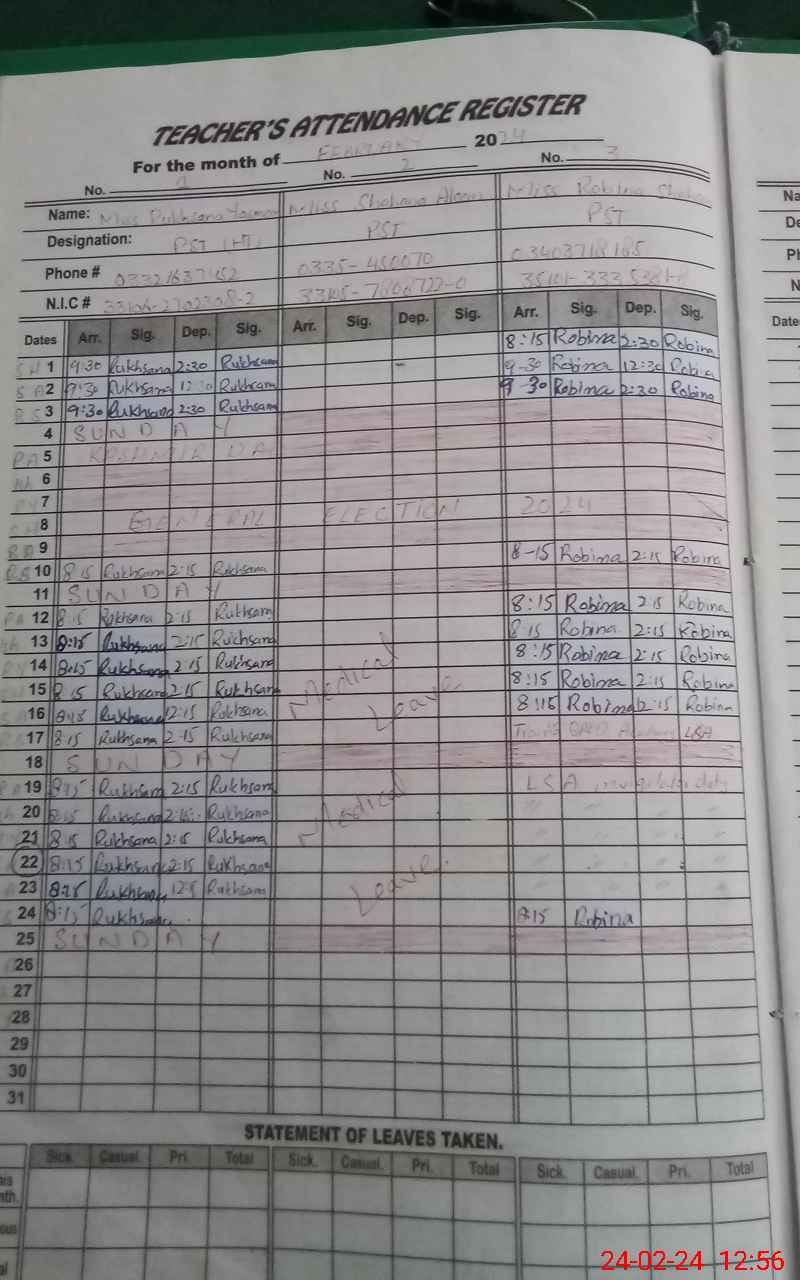 TEACHER'S ATTENDANCE REGISTER
For the month of FEBRUARY 2024
No. 1 No. 2 No. 3
Name: Miss Rukhsana Miss Shahana Miss Robina
Designation: PST (HT) PST PST
Phone #
N.I.C #
Dates Arr. Sig. Dep. Sig. Arr. Sig. Dep. Sig. Arr. Sig. Dep. Sig.
1 9:30 Rukhsana 2:30 Rukhsana 8:15 Robina 2:30 Robina
2 9:30 Rukhsana 12:30 Rukhsana 9-30 Robina 12:30 Robina
3 9:30 Rukhsana 2:30 Rukhsana 9-30 Robina 2:30 Robina
4 SUNDAY
5 KASHMIR DAY
6
7
8 GENERAL ELECTION 2024
9
10 8:15 Rukhsana 2:15 Rukhsana 8-15 Robina 2:15 Robina
11 SUNDAY
12 8:15 Rukhsana 2:15 Rukhsana 8:15 Robina 2:15 Robina
13 8:15 Rukhsana 2:15 Rukhsana 8:15 Robina 2:15 Robina
14 8:15 Rukhsana 2:15 Rukhsana Medical 8:15 Robina 2:15 Robina
15 8:15 Rukhsana 2:15 Rukhsana Leave 8:15 Robina 2:15 Robina
16 8:15 Rukhsana 12:15 Rukhsana 8:15 Robina 2:15 Robina
17 8:15 Rukhsana 2:15 Rukhsana LSA
18 SUNDAY
19 8:15 Rukhsana 2:15 Rukhsana Medical LSA duty
20 8:15 Rukhsana 2:15 Rukhsana
21 8:15 Rukhsana 2:15 Rukhsana
22 8:15 Rukhsana 2:15 Rukhsana Leave.
23 8:15 Rukhsana Rukhsana
24 8:15 Rukhsana 8:15 Robina
25 SUNDAY
26
27
28
29
30
31
STATEMENT OF LEAVES TAKEN.
Sick. Casual. Pri. Total Sick. Casual. Pri. Total Sick. Casual. Pri. Total
24-02-24 12:56